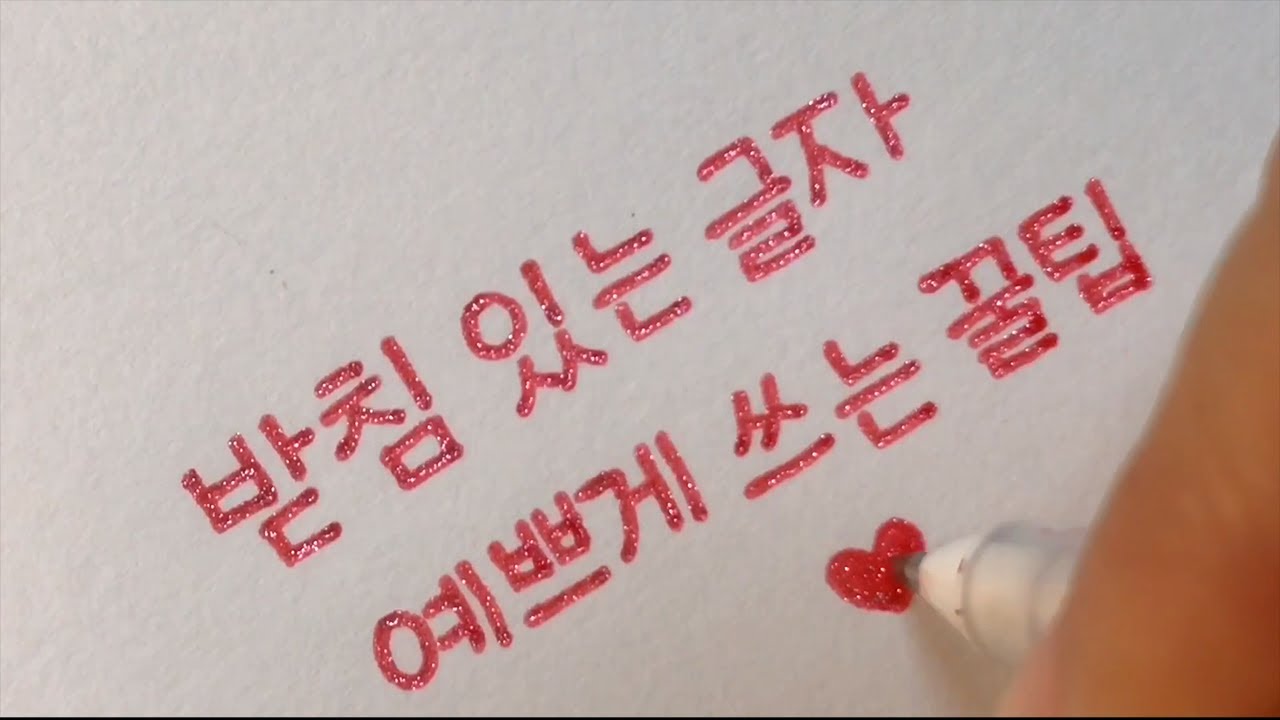 받침 있는 글자
예쁘게 쓰는 꿀팁